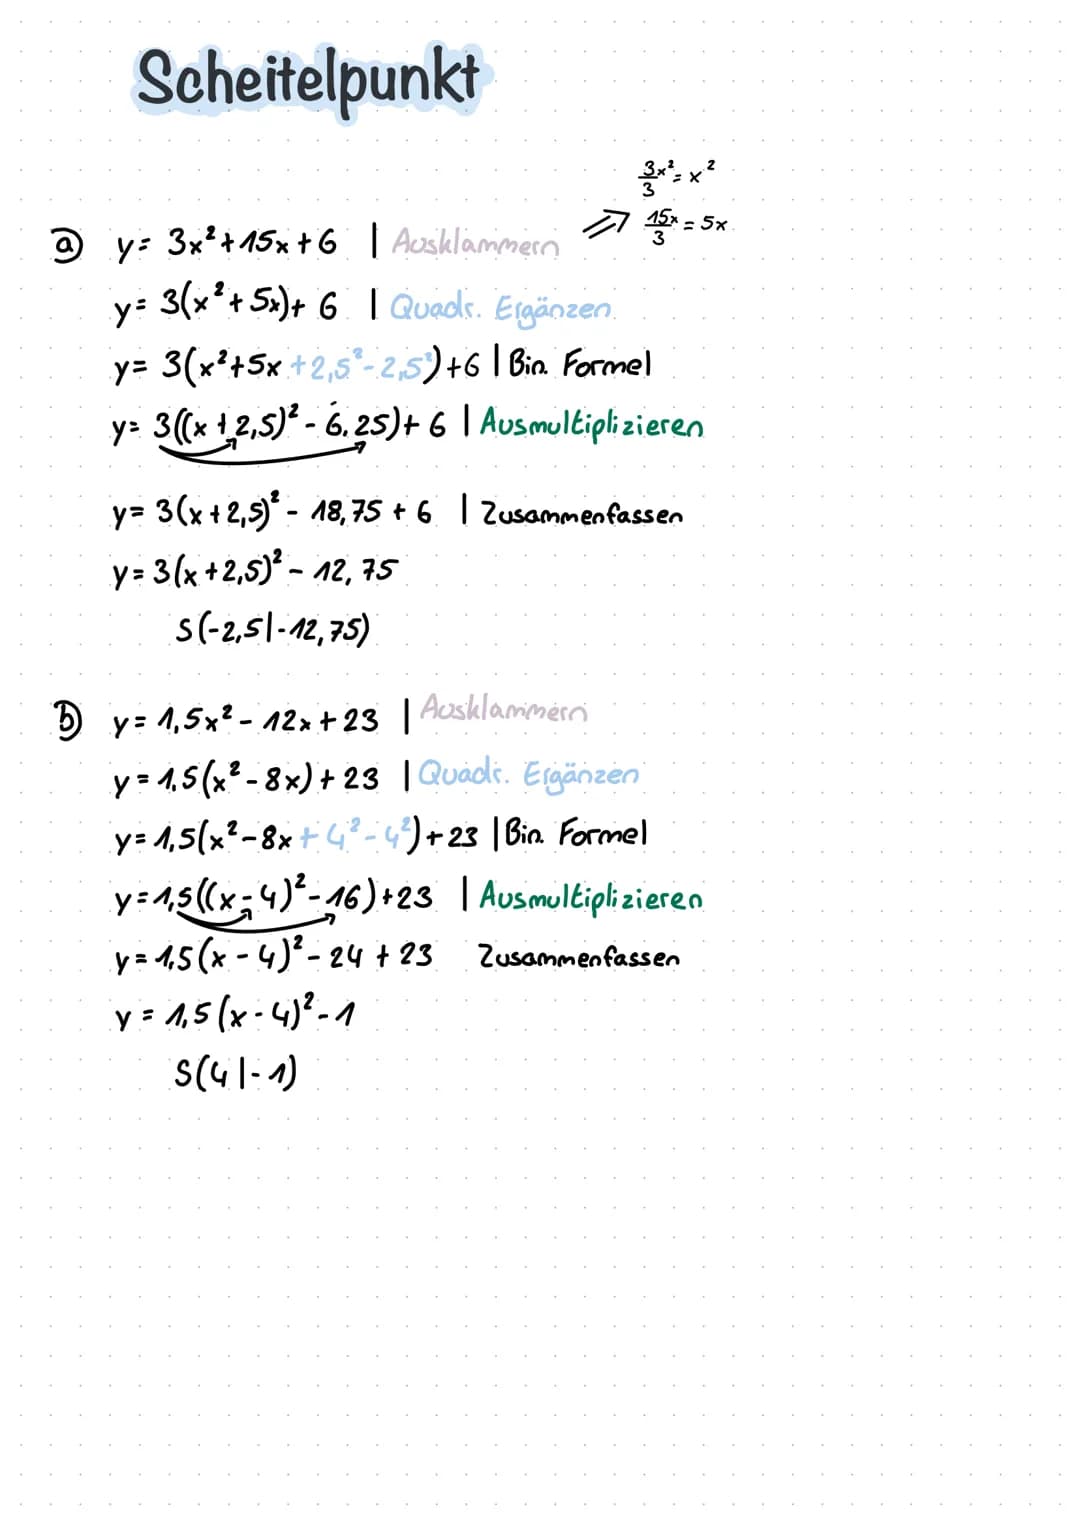 Scheitelpunkt
3x²/3 = x²
⇒ 15x/3 = 5x
a) y = 3x² + 15x + 6 | Ausklammern
y = 3(x² + 5x) + 6 | Quadr. Ergänzen
y = 3(x² + 5x + 2,5² - 2,5²) + 6 | Bin. Formel
y = 3((x + 2,5)² - 6,25) + 6 | Ausmultiplizieren
y = 3(x + 2,5)² - 18,75 + 6 | Zusammenfassen
y = 3(x + 2,5)² - 12,75
S(-2,5|-12,75)
b) y = 1,5x² - 12x + 23 | Ausklammern
y = 1,5(x² - 8x) + 23 | Quadr. Ergänzen
y = 1,5(x² - 8x + 4² - 4²) + 23 | Bin. Formel
y = 1,5((x - 4)² - 16) + 23 | Ausmultiplizieren
y = 1,5(x - 4)² - 24 + 23 Zusammenfassen
y = 1,5(x - 4)² - 1
S(4|-1)